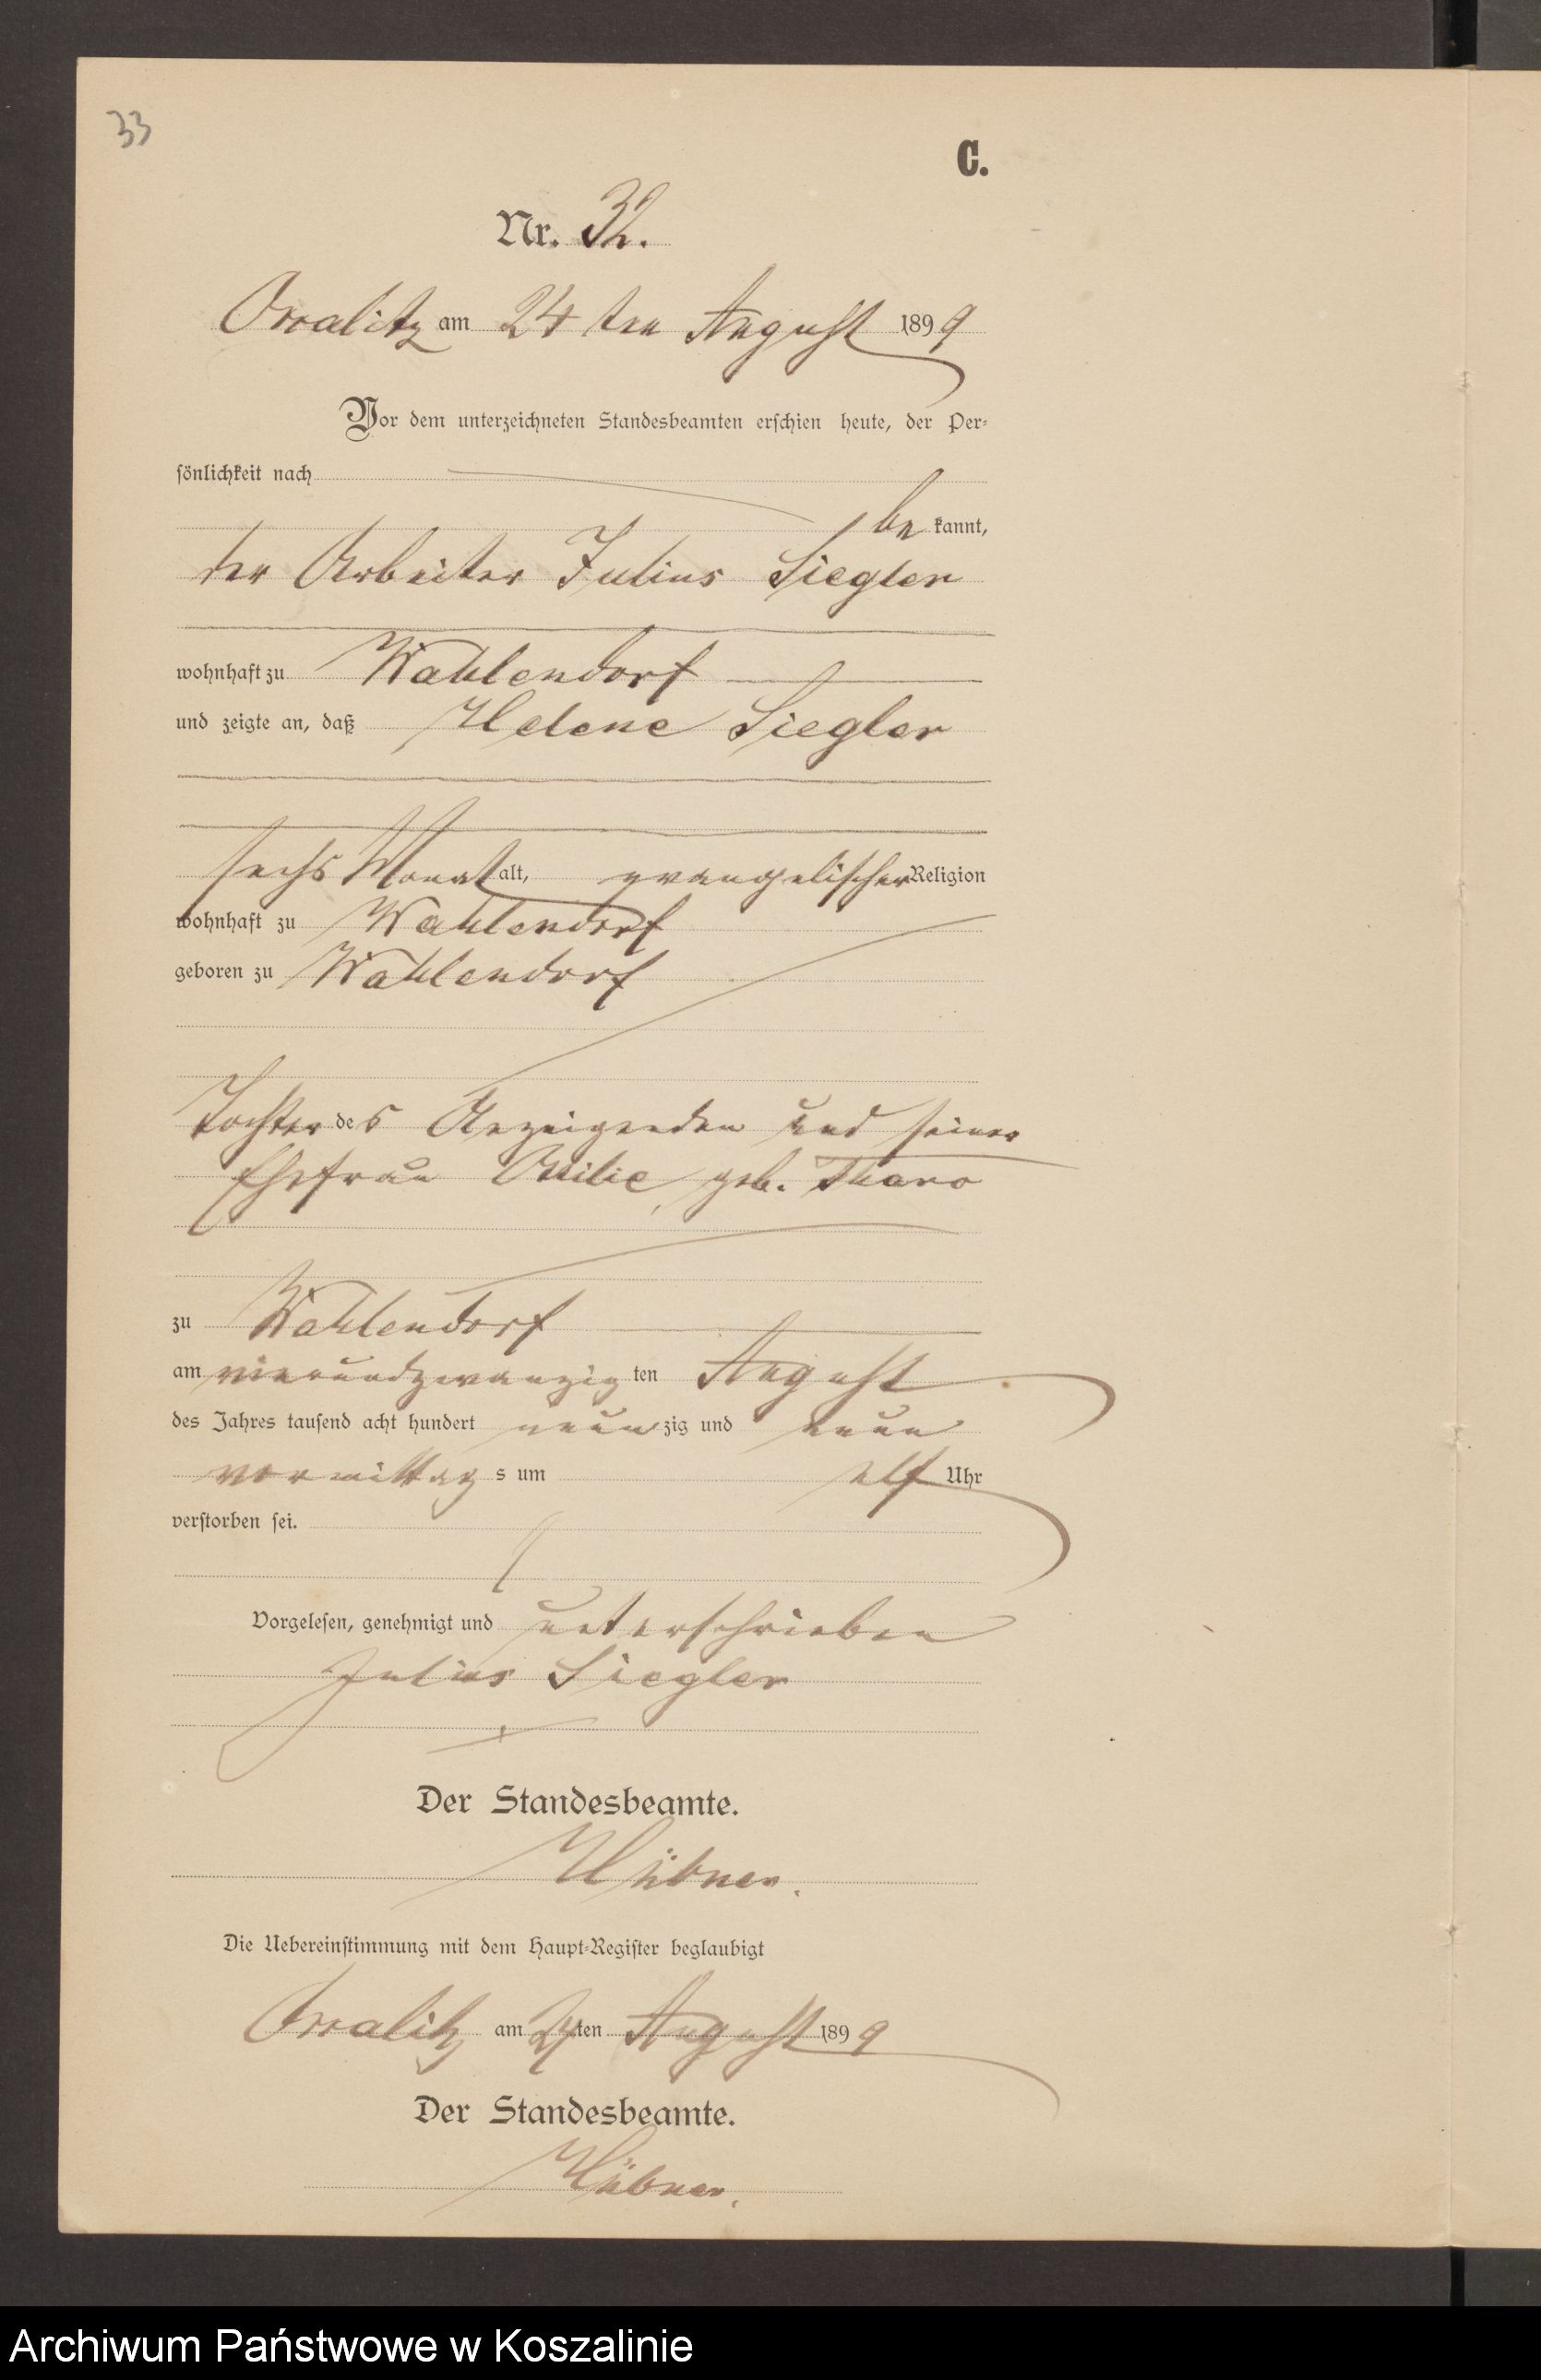 33
C.
Nr. 32.
Orralitz am 24 ten August 1899
Vor dem unterzeichneten Standesbeamten erschien heute, der Per-
sönlichkeit nach
be kannt,
der Arbeiter Julius Siegler
wohnhaft zu Wahlendorf
und zeigte an, daß Helene Siegler
sechs Monat alt, evangelischer Religion
wohnhaft zu Wahlendorf
geboren zu Wahlendorf
Tochter des Anzeigenden und seiner
Ehefrau Ottilie, geb. Tharo
zu Wahlendorf
am vierundzwanzig ten August
des Jahres tausend acht hundert neun zig und neun
vormittag s um elf Uhr
verstorben sei.
Vorgelesen, genehmigt und unterschrieben
Julius Siegler
Der Standesbeamte.
Hübner.
Die Uebereinstimmung mit dem Haupt-Register beglaubigt
Orralitz am 24ten August 1899
Der Standesbeamte.
Hübner.
Archiwum Państwowe w Koszalinie